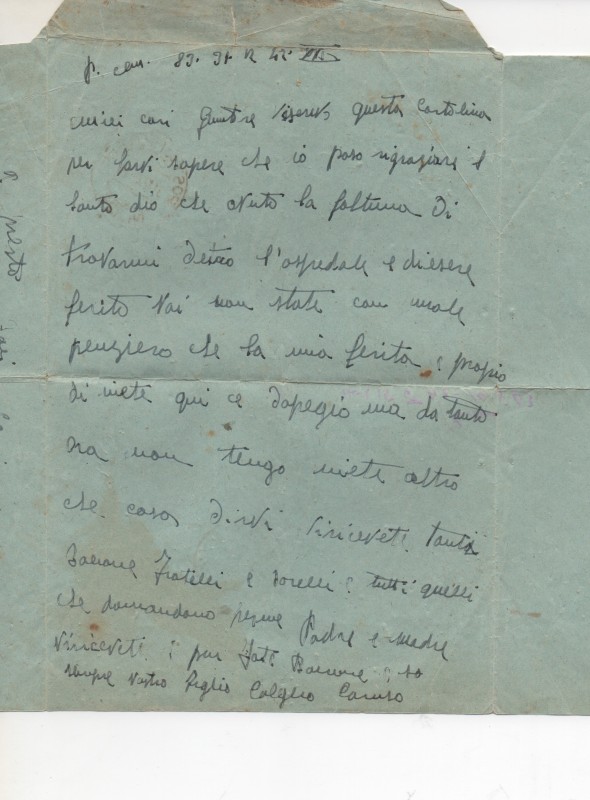 p. cam. 89. 9. R 42. XX
miei cari Genitore viscrivo questa Cartolina
per farvi sapere che io poso rigraziare il
Santo dio che avuto la foltuna di
trovarmi detro l'ospedale e diesere
ferito Voi non state con male
penziero che la mia ferita e propio
di niete qui ce dapegio ma da tanto
ora non tengo niete altro
che cosa dirvi viricevete tanti
Bacione Fratelli e sorelli e tutti quelli
che domandono perme Padre e madre
viricevete i piu forti Bacione e so
sempre vostro figlio Calogero Caruso
presto